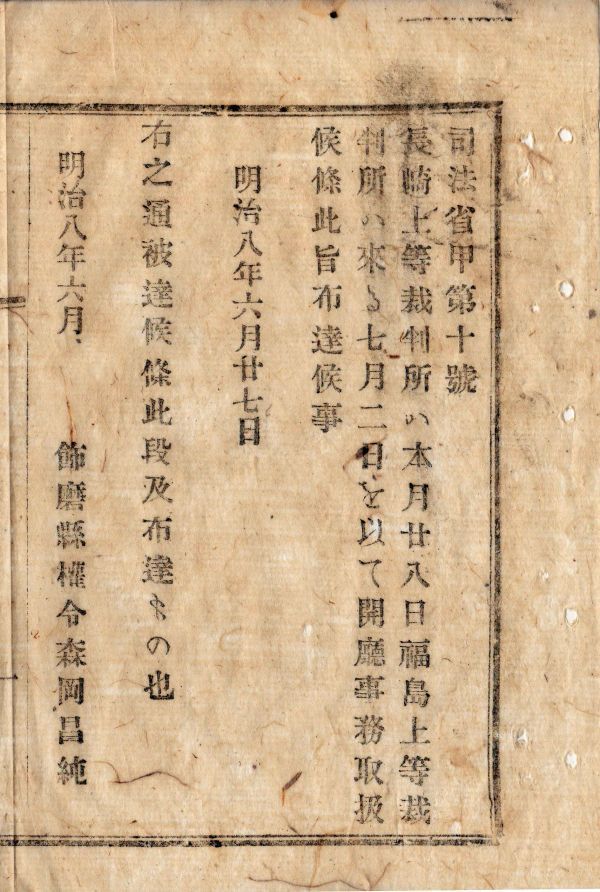 司法省甲第十號
長崎上等裁判所ハ本月廿八日福島上等裁
判所ハ來る七月二日を以て開廳事務取扱
候條此旨布達候事
明治八年六月廿七日
右之通被達候條此段及布達もの也
明治八年六月、
飾磨縣權令森岡昌純